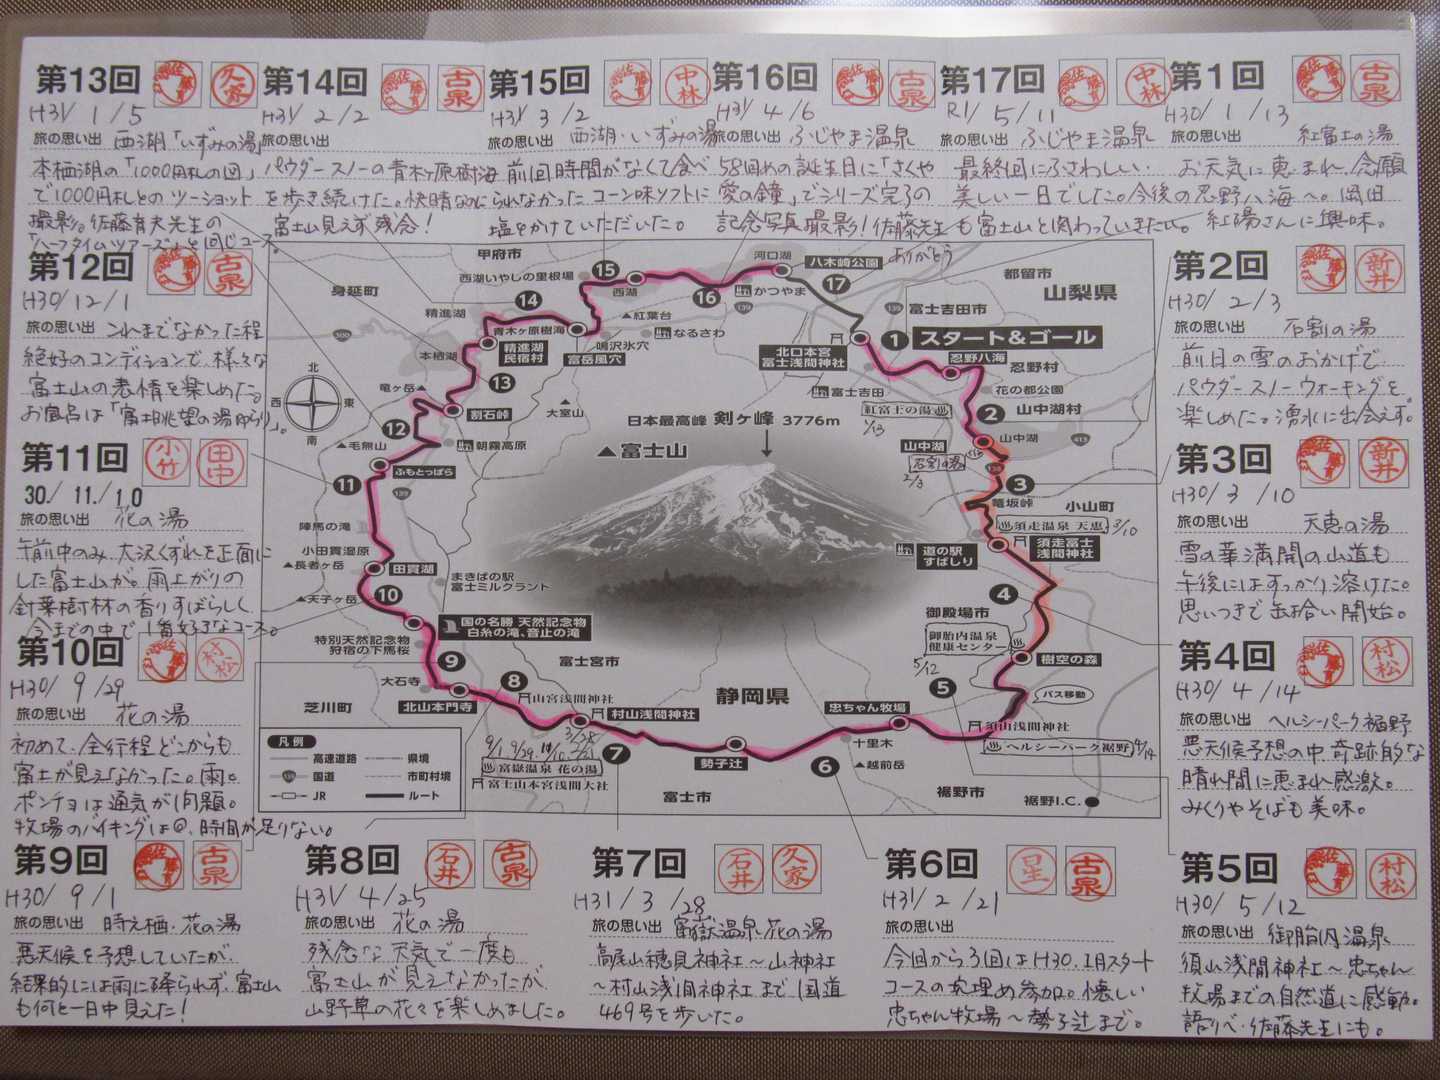 第13回
H31/1/5
旅の思い出 西湖「いずみの湯」
本栖湖の「1000円札の図」
で1000円札とのツーショット
撮影。佐藤育夫先生の
「ハーフタイムツアーズ」も同じコース。
第14回
H31/2/2
旅の思い出
パウダースノーの青木ヶ原樹海
を歩き続けた。快晴なのに
富士山見えず残念!
第15回
H31/3/2
旅の思い出 西湖・いずみの湯
前回時間がなくて食べ
られなかったコーン味ソフトに
塩をかけていただいた。
第16回
H31/4/6
旅の思い出 ふじやま温泉
58回めの誕生日に「さくや
愛の鐘」でシリーズ完了の
記念写真撮影!佐藤先生
ありがとう
第17回
R1/5/11
旅の思い出 ふじやま温泉
最終回にふさわしい
美しい一日でした。今後の
も富士山と関わっていきたい。
第1回
H30/1/13
旅の思い出 紅富士の湯
お天気に恵まれ、念願
忍野八海へ。岡田
紅陽さんに興味。
第2回
H30/2/3
旅の思い出 石割の湯
前日の雪のおかげで
パウダースノーウォーキングを
楽しめたっ湧水に出会えず。
第3回
H30/3/10
旅の思い出 天恵の湯
雪の華満開の山道も
午後にはすっかり溶けた。
思いつきで缶拾い開始。
第4回
H30/4/14
旅の思い出 ヘルシーパーク裾野
悪天候予想の中奇跡的な
晴れ間に恵まれ感激。
みくりやそばも美味。
第5回
H30/5/12
旅の思い出 御胎内温泉
須山浅間神社〜忠ちゃん
牧場までの自然道に感動。
語りべ・佐藤先生にも。
第6回
H31/2/21
旅の思い出
今回から3回はH30.1月スタート
コースの穴埋め参加。懐しい
忠ちゃん牧場〜勢子辻まで。
第7回
H31/3/28
旅の思い出 富嶽温泉花の湯
高尾山穂見神社〜山神社
〜村山浅間神社まで国道
469号を歩いた。
第8回
H31/4/25
旅の思い出 花の湯
残念な天気で一度も
富士山が見えなかったが
山野草の花々を楽しめました。
第9回
H30/9/1
旅の思い出 時之栖・花の湯
悪天候を予想していたが、
結果的には雨に降られず、富士山
も何と一日中見えた!
第10回
H30/9/29
旅の思い出 花の湯
初めて、全行程どこからも
富士が見えなかった。雨と
ポンチョは通気が問題。
牧場のバイキングは◎、時間が足りない。
第11回
30./11./10
旅の思い出 花の湯
午前中のみ、大沢くずれを正面に
した富士山が。雨上がりの
針葉樹林の香りすばらしく
今までの中で1番好きなコース。
第12回
H30/12/1
旅の思い出 これまでなかった程
絶好のコンディションで、様々な
富士山の表情を楽しめた。
お風呂は「富士眺望の湯ゆらり」。
古泉
久家
中林
新井
村松
石井
星
小竹
田中
山梨県
静岡県
甲府市
身延町
都留市
富士吉田市
忍野村
山中湖村
小山町
御殿場市
裾野市
富士市
富士宮市
芝川町
スタート&ゴール
北口本宮
冨士浅間神社
忍野八海
花の都公園
富士吉田
紅富士の湯
1/13
山中湖
山中湖
石割の湯
2/3
籠坂峠
須走温泉 天恵
3/10
須走冨士
浅間神社
道の駅
すばしり
御胎内温泉
健康センター
5/12
樹空の森
バス移動
須山浅間神社
ヘルシーパーク裾野
4/14
裾野I.C.
忠ちゃん牧場
十里木
越前岳
勢子辻
村山浅間神社
山宮浅間神社
富嶽温泉 花の湯
富士山本宮浅間大社
北山本門寺
大石寺
特別天然記念物
狩宿の下馬桜
国の名勝 天然記念物
白糸の滝、音止の滝
天子ヶ岳
長者ヶ岳
田貫湖
小田貫湿原
まきばの駅
富士ミルクランド
陣馬の滝
ふもとっぱら
毛無山
朝霧高原
竜ヶ岳
割石峠
本栖湖
精進湖
精進湖
民宿村
大室山
青木ヶ原樹海
富岳風穴
鳴沢氷穴
紅葉台
なるさわ
西湖いやしの里根場
西湖
かつやま
河口湖
八木崎公園
日本最高峰 剣ヶ峰 3776m
▲富士山
北
西
東
南
凡例
高速道路
国道
JR
県境
市町村境
ルート
1
2
3
4
5
6
7
8
9
10
11
12
13
14
15
16
17